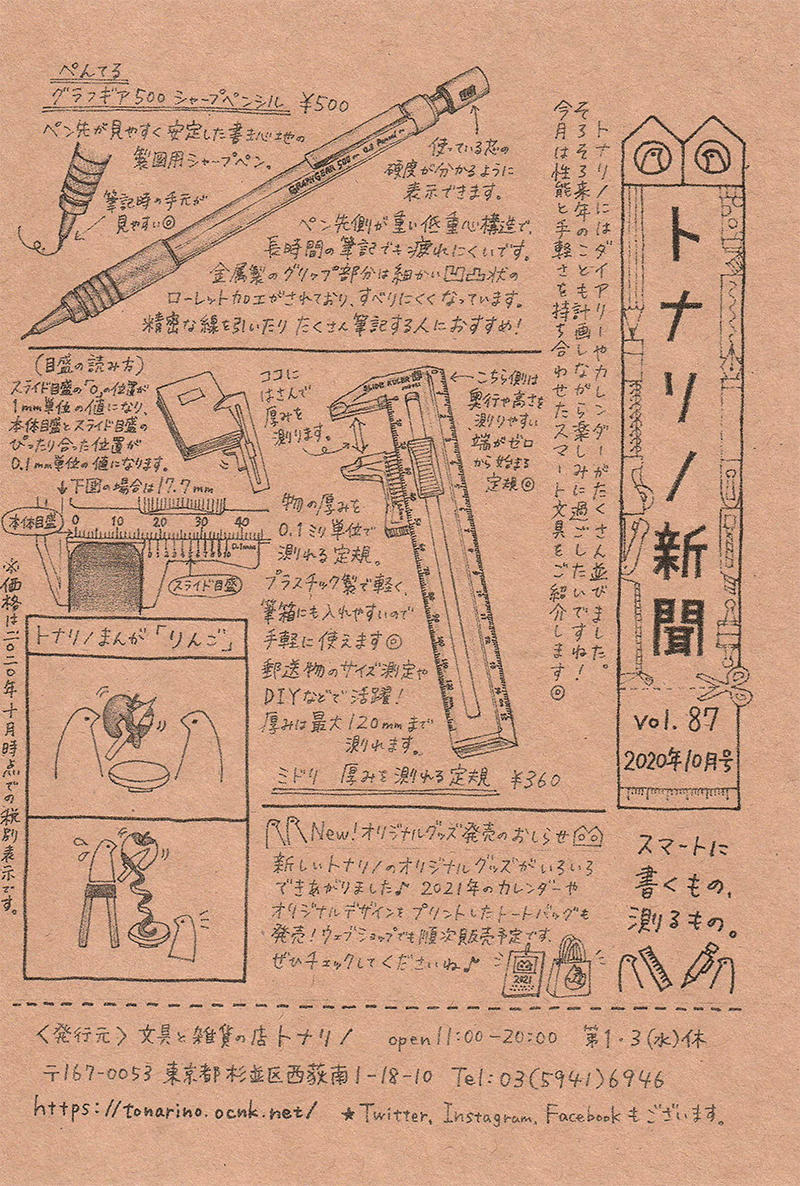 トナリノ新聞
vol. 87
2020年10月号
スマートに
書くもの、
測るもの。
トナリノにはダイアリーやカレンダーがたくさん並びました。
そろそろ来年のことも計画しながら楽しみに過ごしたいですね!
今月は性能と手軽さを持ち合わせたスマート文具をご紹介します◎
ぺんてる
グラフギア500 シャープペンシル ¥500
ペン先が見やすく安定した書き心地の
製図用シャープペン。
筆記時の手元が
見やすい◎
GRAPHGEAR 500
0.5 Pentel
使っている芯の
硬度が分かるように
表示できます。
ペン先側が重い低重心構造で、
長時間の筆記でも疲れにくいです。
金属製のグリップ部分は細かい凹凸状の
ローレット加工がされており、すべりにくくなっています。
精密な線を引いたり たくさん筆記する人におすすめ!
(目盛の読み方)
スライド目盛の「0」の位置が
1mm単位の値になり、
本体目盛とスライド目盛の
ぴったり合った位置が
0.1mm単位の値になります。
↓下図の場合は17.7mm
本体目盛
0 10 20 30 40
スライド目盛
ココに
はさんで
厚みを
測ります。
SLIDE RULER
←こちら側は
奥行や高さを
測りやすい
端がゼロ
から始まる
定規◎
物の厚みを
0.1ミリ単位で
測れる定規。
プラスチック製で軽く、
筆箱にも入れやすいので
手軽に使えます◎
郵送物のサイズ測定や
DIYなどで活躍!
厚みは最大120mmまで
測れます。
ミドリ 厚みを測れる定規 ¥360
トナリノまんが「りんご」
※価格は二〇二〇年十月時点での税別表示です。
New!オリジナルグッズ発売のおしらせ
新しいトナリノのオリジナルグッズがいろいろ
できあがりました♪ 2021年のカレンダーや
オリジナルデザインをプリントしたトートバッグも
発売!ウェブショップでも順次販売予定です。
ぜひチェックしてくださいね♪
2021
<発行元> 文具と雑貨の店トナリノ open 11:00-20:00 第1・3(水)休
〒167-0053 東京都杉並区西荻南1-18-10 Tel:03(5941)6946
https://tonarino.ocnk.net/ ★Twitter, Instagram, Facebookもございます。